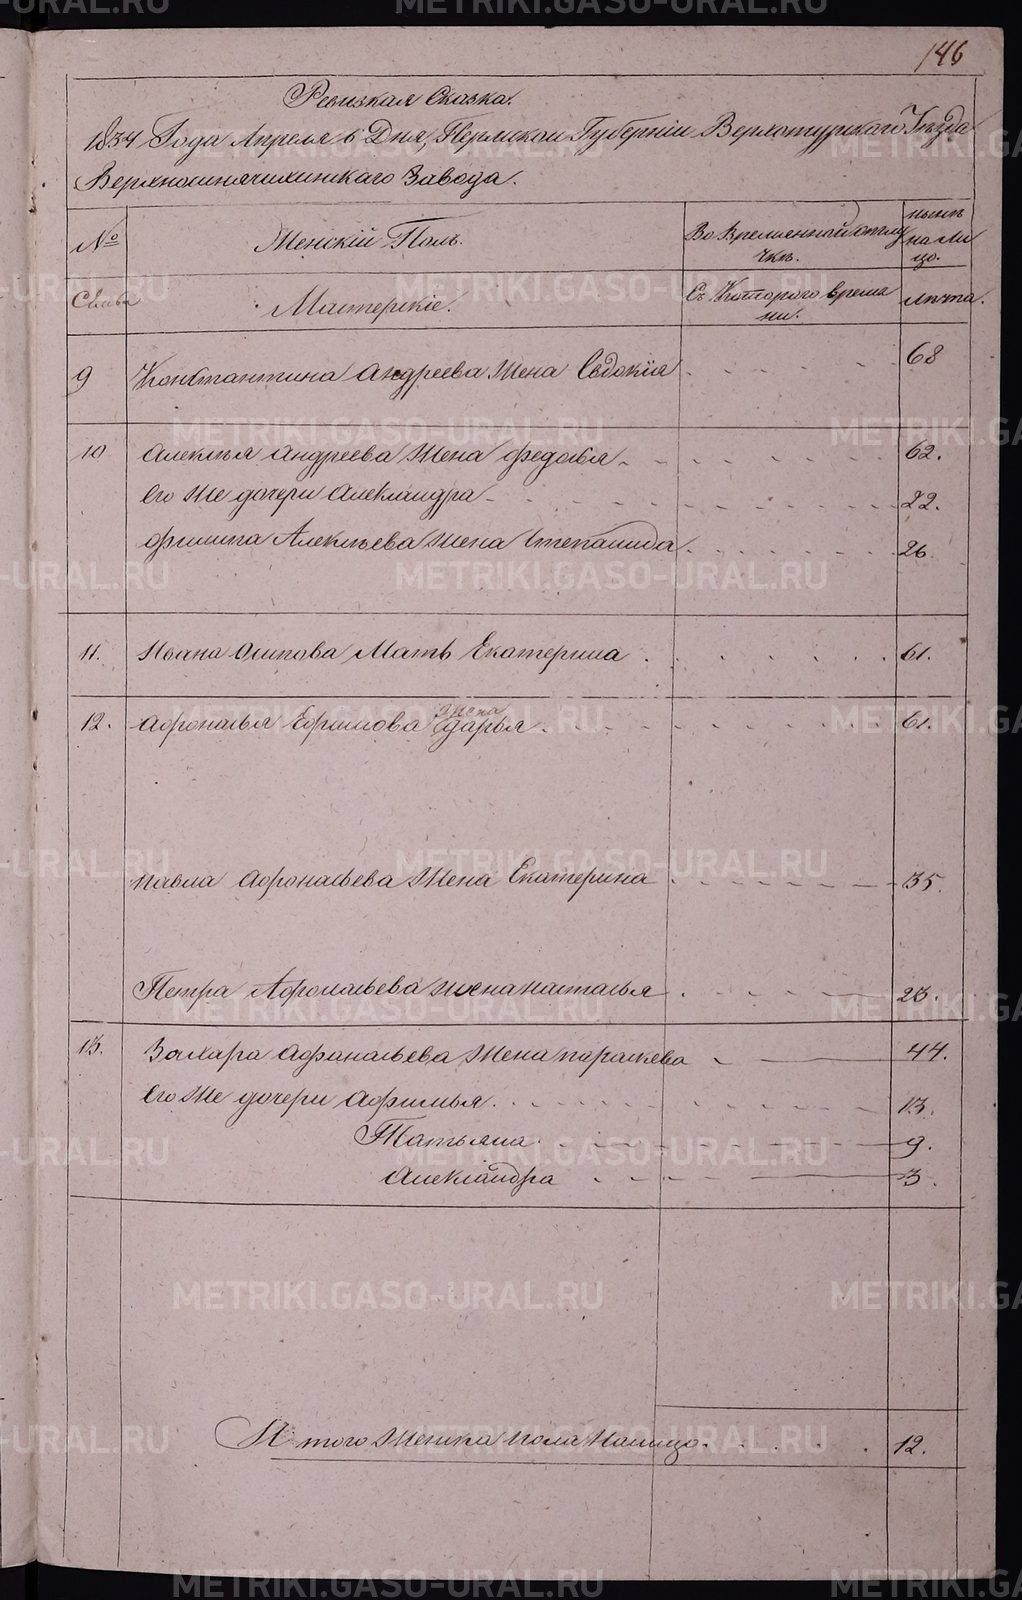 146
Ревизкая Сказка.
1834 Года Апреля 6 Дня, Пермской Губернiи Верхотурскаго Уезда
Верхносинячихинскаго Завода.
№ Женскiй Полъ. Во Временной отлу ныне
чке. на ли
цо.
Семья Мастерскiе. Съ Которого време лета.
ни.
9 Константина Андреева Жена Евдокiя 68
10 Алексея Андреева Жена Федосья 62.
Его Же дочери Александра 22.
Филипа Алексеева Жена Степанида 26
11. Ивана Осипова Мать Екатерина 61.
жена
12. Афонасья Ефимова Дарья 61.
Павла Афонасьева Жена Екатерина 35.
Петра Афонасьева жена Настасья 23.
13. Захара Афанасьева Жена парасковья 44.
Его Же дочери Афимья 13.
Татьяна 9.
Александра 3.
И того Женска пола Налицо 12.
METRIKI.GASO-URAL.RU